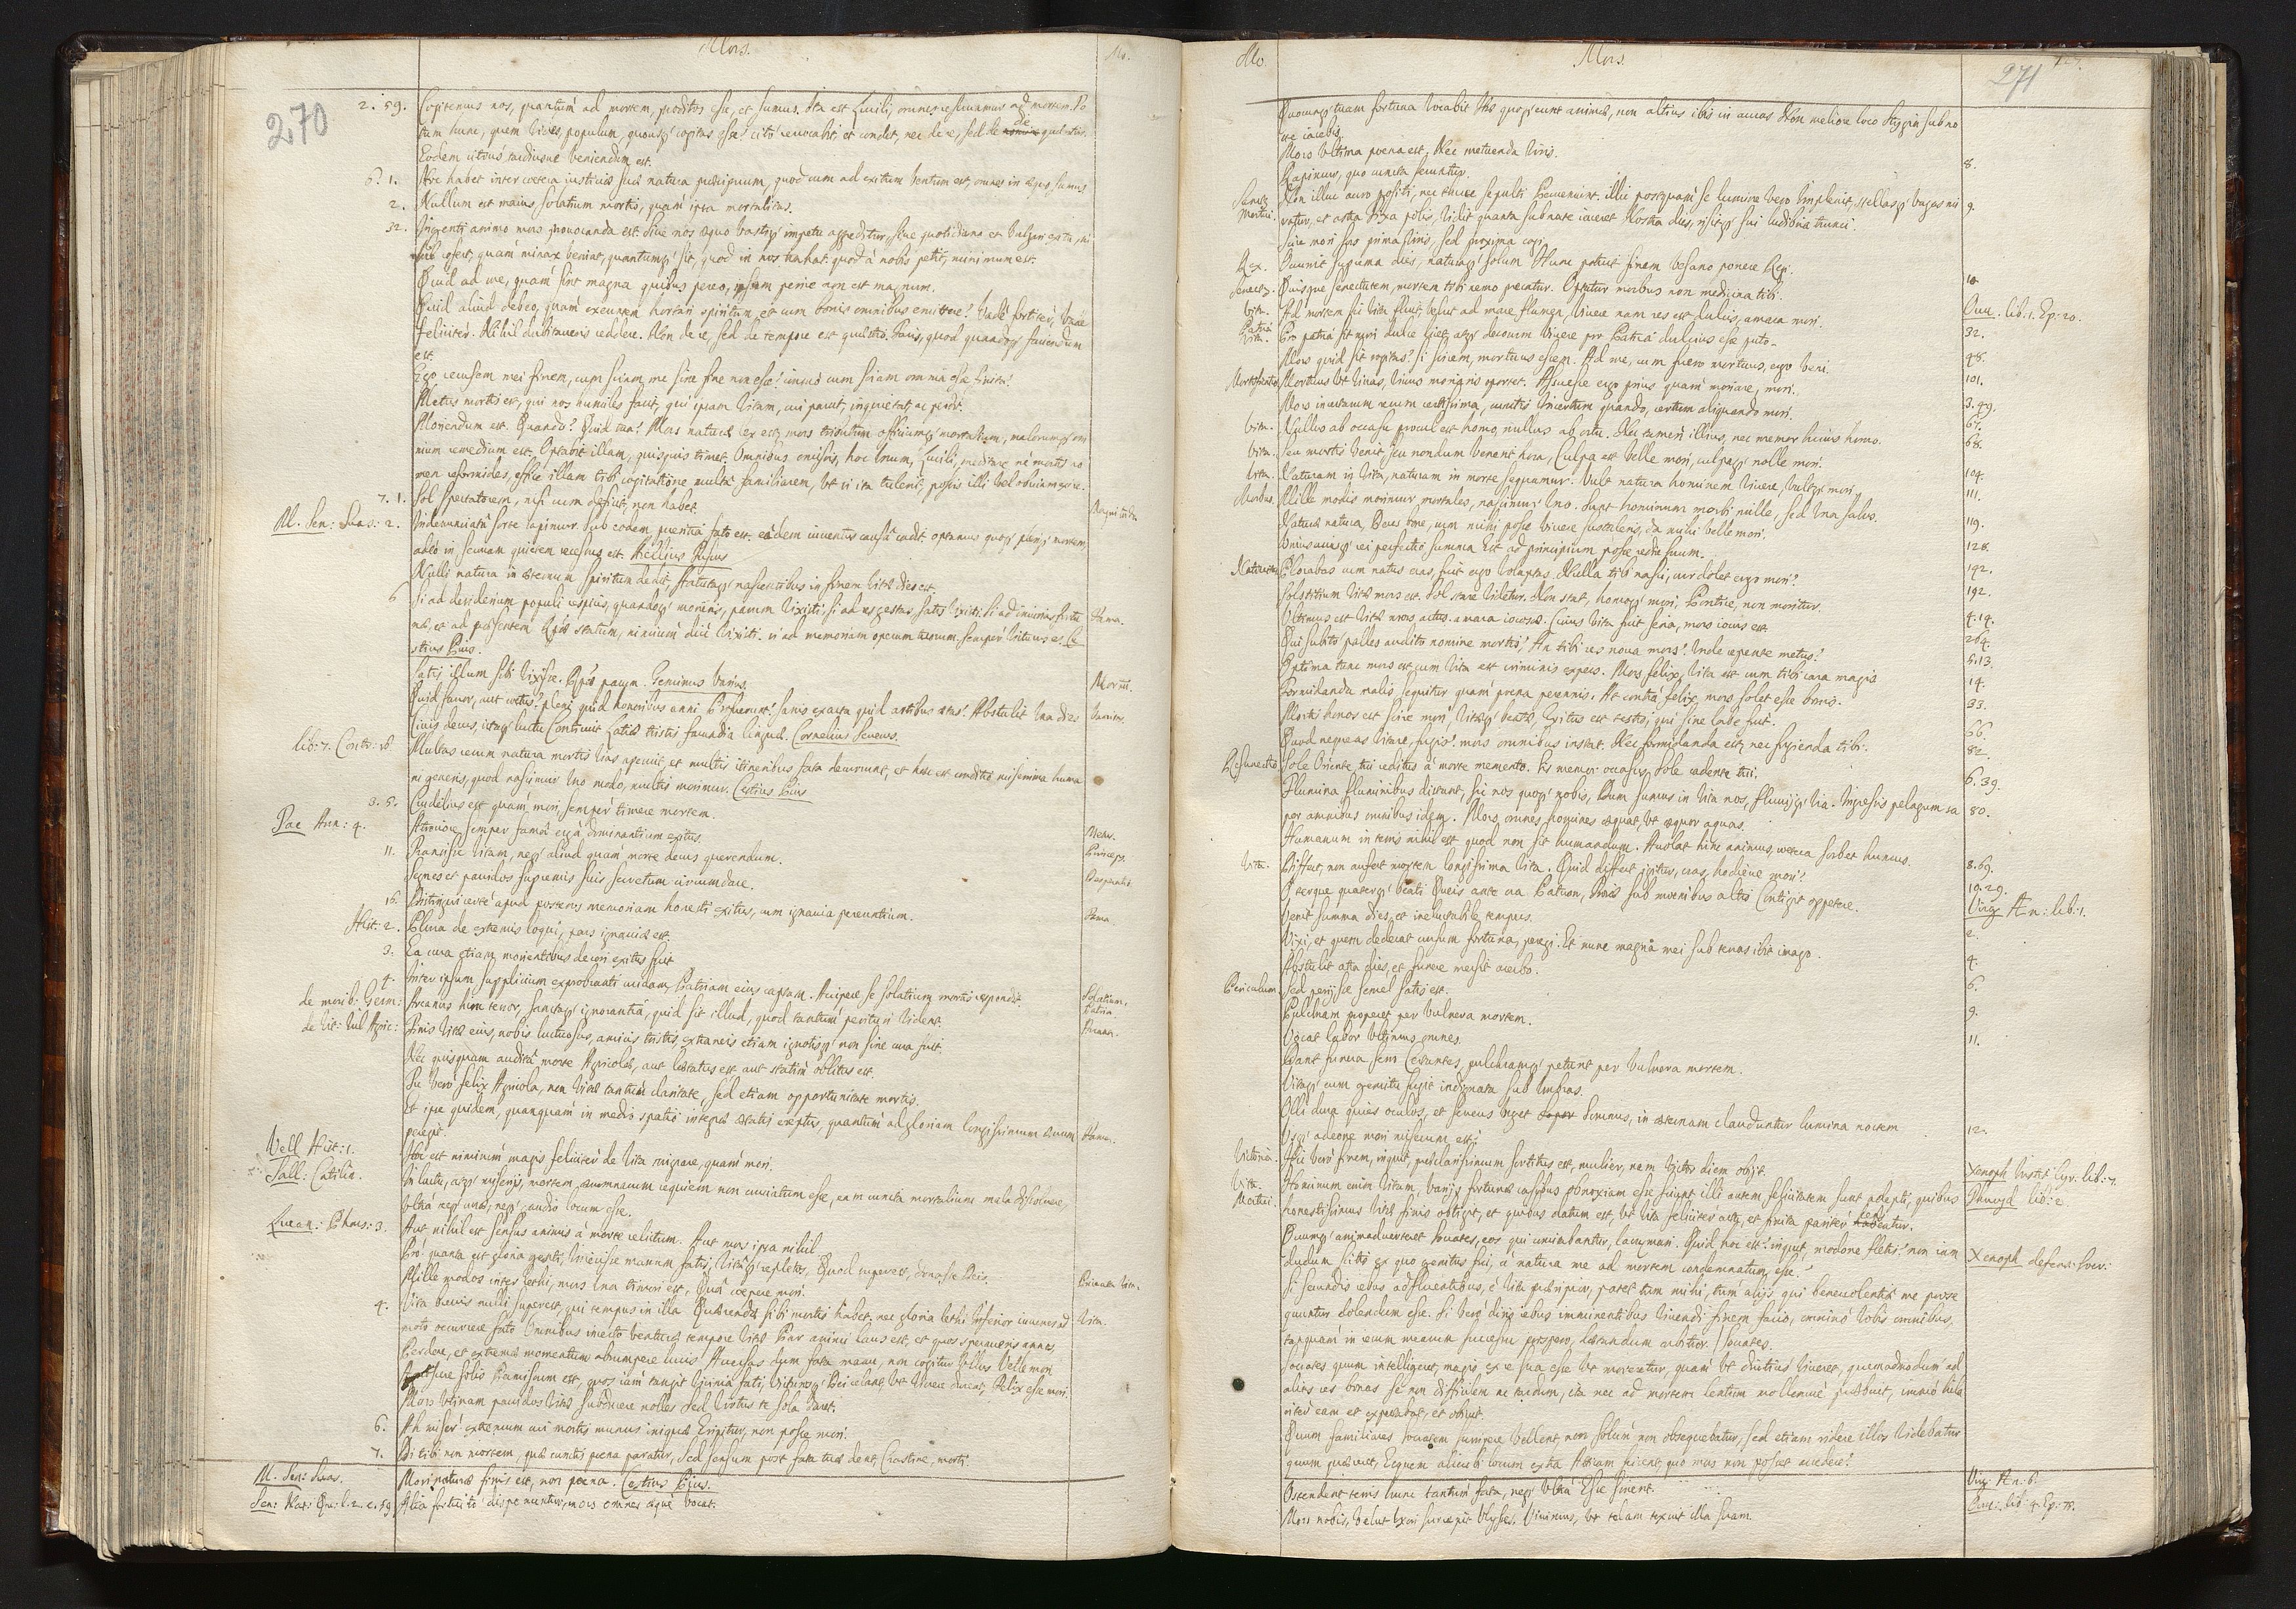 Mors.
Mo.
270
2. 59. Cogitemus nos, quantum ad mortem, perditos esse, et sumus. Ita est Lucili, omnes reservamur ad mortem. To
tum hunc, quem vides, populum, quousq; cogitas esse? citò revocabit, et condet, nec de re, sed de die quæritur.
Eodem citius tardiusve veniendum est.
6. 1. Hoc habet inter cætera iustitiæ suæ natura præcipuum, quod cum ad exitum ventum est, omnes in æquo sumus
2. Nullum est maius solatium mortis, quàm ipsa mortalitas.
32. Ingenti animo mors provocanda est. sive nos æquo vastoq; impetu aggreditur, sive quotidiano et vulgari exitu, ni
hil refert, quàm minax veniat, quantumq; sit, quod in nos trahat. quod à nobis petit, minimum est.
Quid ad me, quàm sint magna quibus pereo, ipsum perire non est magnum.
Quid aliud debeo, quàm exeuntem hortari spiritum, et cum bonis omnibus emittere? Vade fortiter, vade
feliciter. Nihil dubitaveris reddere. Non de re, sed de tempore est quæstio. Facis, quod quandoq; faciendum
est.
Ego recusem mei finem, cum sciam, me sine fine non esse? immò cum sciam omnia esse finita?
Metus mortis est, qui nos humiles facit, qui ipsam vitam, cui parcit, inquietat, ac perdit.
Moriendum est. Quando? Quid tua? Mors naturæ lex est, mors tributum officiumq; mortalium, malorumq; om
nium remedium est. Optabit illam, quisquis timet. Omnibus omissis, hoc unum, Lucili, meditare, nè mortis no
men reformides, effice illam tibi cogitatione multa familiarem, ut si ita tulerit, possis illi vel obviam exire.
7. 1. Sol spectatorem, nisi cum deficit, non habet.
Magnitudo
M. Sen: Suas: 2. Indenunciatâ sorte rapimur. Sub eodem pueritia fato est. eâdem iuventus causâ cadit. optamus quoq; plerumq; mortem,
adeò in securam quietem recessus est. Gellius Fuscus
Nulli natura in æternum spiritum dedit, statutaq; nascentibus in finem vitæ dies est.
6 Si ad desiderium populi respicis, quandoq; morieris, parum vixisti. si ad res gestas, satis vixisti. si ad iniurias fortu
næ, et ad præsentem Reip: statum, nimium diù vixisti. si ad memoriam operum tuorum, semper victurus es. Ce
stius Pius.
Fama.
Satis illum sibi vixisse. Reip: parùm. Geminus Varius
Mortui.
Quid favor, aut coetus? pleni quid honoribus anni Profuerunt? sacris exacta quid artibus ætas? Abstulit una dies
Civis decus, ictaq; luctu Conticuit Latiæ tristis facundia linguæ. Cornelius Severus.
lib: 7. Contr: 16. Multas rerum natura mortis vias aperuit, et multis itineribus fata decurrunt, et hæc est conditio miserrima huma
ni generis, quod nascimur uno modo, multis morimur. Cestius Pius
3. 5. Crudelius est quàm mori, semper timere mortem.
Tac Ann: 4. Atrociore semper famâ ergà dominantium exitus.
Princeps.
11. Transisse vitam, neq; aliud quàm morte decus quærendum.
Segnes et pavidos supremis suis secretum circumdare.
Desperatio
16. Distingui certè apud posteros memoriam honesti exitus, cum ignavia pereuntium.
Fama.
Hist: 2. Plura de extremis loqui, pars ignaviæ est.
3. Ea cura etiam morientibus decori exitus fuit
4. Inter ipsum supplicium exprobranti cuidam, Patriam eius captam. Accipere se solatium mortis respondit.
Solatium.
Patria
de morib: Germ: Arcanus hinc terror, sanctaq; ignorantia, quid sit illud, quod tantùm perituri vident.
de vit: Iul Agric: Finis vitæ eius, nobis luctuosus, amicis tristis, extraneis etiam ignotisq; non sine cura fuit.
Nec quisquam auditâ morte Agricolæ, aut lætatus est aut statìm oblitus est.
Tu verò felix Agricola, non vitæ tantùm claritate, sed etiam opportunitate mortis.
Et ipse quidem, quanquàm in medio spatio integræ ætatis ereptus, quantùm ad gloriam longissimum ævum
peregit.
Fama.
Vell Hist: 1. Hoc est nimirùm magis feliciter de vita migrare, quàm mori.
Sall: Catilin. In luctu, atq; miserijs, mortem ærumnarum requiem non cruciatum esse, eam cuncta mortalium mala dissolvere,
ultrà neq; curæ, neq; gaudio locum esse.
Lucan: Phars: 3. Aut nihil est sensus animis à morte relictum. Aut mors ipsa nihil.
Pro! quanta est gloria genti, Iniecisse manum fatis, vitâq; repletos, Quod superest, donasse Deis.
Mille modos inter lethi, mors una timori est, Quâ coepere mori.
4. Vita brevis nulli superest, qui tempus in illa Quærendæ sibi mortis habet. nec gloria lethi Inferior iuvenes ad
moto occurrere fato Omnibus incerto venturæ tempore vitæ Par animi laus est, et quos speraveris annos
Perdere, et extremæ momentum abrumpere lucis Accersas dum fata manu, non cogitur ullus Velle mori
Vita.
Agnoscere solis Permissum est, quos iam tangit vicinia fati, Victurosq; Dei celant, ut vivere durent, Felix esse mori.
Mors utinam pavidos vitæ subducere nolles Sed virtus te sola daret.
6. Ah miseri extremum cui mortis munus iniquæ Eripitur, non posse mori.
7. Di tibi non mortem, quæ cunctis poena paratur, Sed sensum post fata tuæ dent, Crastine, morti.
M. Sen: Suas. Mori naturæ finis est, non poena. Cestius Pius.
Sen: Nat: Qu: l. 2. c. 59 Alia fortuitò disponuntur, mors omnes æquè vocat.
Mo.
Mors.
271
Quocunq; tuam fortuna vocabit Hæ quoq; eunt animæ, non altius ibis in auras Non meliore loco Stygia sub no
cte iacebis.
Mors ultima poena est, Nec metuenda viris.
8.
Rapimur, quo cuncta feruntur.
Non illuc auro positi, nec thure sepulti Perveniunt. illic postquàm se lumine vero Implevit, stellasq; vagas mi
9.
ratur, et astra Fixa polis, Vidit quanta sub nocte iaceret Nostra dies, risitq; sui ludibria trunci.
Mortui.
Scire mori sors prima viris, sed proxima cogi.
Rex. Occurrit suprema dies, naturaq; solum Hunc potuit finem vesano ponere Regi.
10
Senect. Quisque senectutem, mortem tibi nemo precatur. Optatur morbus non medicina tibi.
Ouu. lib: 1. Ep: 20.
Vita. Ad mortem sic vita fluit, velut ad mare flumen, Vivere nam res est dulcis, amara mori.
32.
Patria. Vita. Pro patria sit mori dulce licet, atq; decorum Vivere pro Patria dulcius esse puto.
48.
Mors quid sit rogitas? si scirem, mortuus essem. Ad me, cum fuero mortuus, ergo veni.
101.
Mortificatio Mortuus ut vivas, vivus moriaris oportet. Assuesce ergo prius quàm moriare, mori.
3. 99.
Mors incertarum rerum certissima, cunctis Incertum quando, certum aliquando mori.
67.
Vita. Nullus ab occasu procul est homo, nullus ab ortu. Nec tamen illius, nec memor huius homo.
68.
Vita. Seu mortis venit, seu nondum venerit hora, Culpa est velle mori, culpaq; nolle mori.
104.
Vita. Naturam in vita, naturam in morte sequamur. Vult natura hominem vivere, vultq; mori.
111.
Morbus. Mille modis morimur mortales, nascimur uno. Sunt hominum morbi mille, sed una salus.
119.
Naturæ natura, Deus bone, cum mihi posse Vivere sustuleris, da mihi velle mori.
128.
Uniuscuiusq; rei perfectio summa Est ad principium posse redire suum.
142.
Nativitas Plorabas cum natus eras, fuit ergo voluptas Nulla tibi nasci, cur dolet ergo mori?
192.
Solstitium vitæ mors est. Sol stare videtur. Non stat, homoq; mori, Pontice, non moritur.
4. 19.
Ultimus est vitæ mors actus. amara iocosæ. Cuius vita fuit seria, mors iocus est.
264.
Qui subito palles audito nomine mortis? An tibi res nova mors? Unde repente metus?
5. 13.
Optima tunc mors est, cum vita est criminis expers. Mors felix, vita est cum tibi cara magis
14.
Formidanda malis sequitur quàm poena perennis. At contrà felix, mors solet esse bonis.
33.
Mortis honos est scire mori, vitæq; beatæ, Exitus est testis, qui sine labe fuit.
66.
Quod nequeas vitare, fugis? mors omnibus instat. Nec formidanda est, nec fugienda tibi.
82.
Resurrectio Sole Oriente, tui reditus à morte memento. Sis memor occasus, Sole cadente tui.
6. 39.
Flumina fluminibus distant, sic nos quoq; nobis, Dum sumus in vita nos, fluvijq; via. Ingressis pelagum sa
80.
por amnibus omnibus idem. Mors omnes homines æquat, ut æquor aquas.
Humanum in terris nihil est quod non sit humandum. Avolat hinc animus, cætera sorbet humus.
8. 69.
Vita. Differt, non aufert mortem longissima vita. Quid differt igitur, cras, hodieve mori?
10. 29.
O terque quaterq; beati Queis ante ora Patrum, Troiæ sub moenibus altis Contigit oppetere.
Virg. Æn: lib: 1.
Venit summa dies, et ineluctabile tempus.
2.
Vixi, et quem dederat cursum fortuna, peregi. Et nunc magna mei sub terras ibit imago.
4.
Abstulit atra dies, et funere mersit acerbo.
6.
Periculum. Sed perijsse semel satis est.
9.
Pulchram properet per vulnera mortem.
Vocat labor ultimus omnes.
11.
Dant funera ferro Certantes, pulchramq; petunt per vulnera mortem.
Vitaq; cum gemitu fugit indignata sub umbras.
Olli dura quies oculos, et ferreus urget Somnus, in æternam clauduntur lumina noctem
Usq; adeone mori miserum est?
12.
Victoria. Hic verò finem, inquit, præclarissimum sortitus est, mulier, nam victor diem obijt.
Xenoph Instit Cyr. lib: 7.
Vita. Hominum enim vitam, varijs fortunæ casibus obnoxiam esse sciunt illi autem felicitatem sunt adepti, quibus
Thucyd lib: 2.
Mortui. honestissimus vitæ finis obtigit, et quibus datum est, ut vita feliciter acta, et finita pariter
Quumq; animadverteret Socrates, eos qui comitabantur, lacrymari. Quid hoc est? inquit, modone fletis? non iam
Xenoph defens: Socr:
dudum scitis ex quo genitus fui, à natura me ad mortem condemnatum, esse?
Si secundis rebus adfluentibus, è vita præripior, patet tum mihi, tùm alijs qui benevolentia me prose
quuntur dolendum esse. Si verò diris rebus imminentibus vivendi finem facio, omninò vobis omnibus,
tanquàm in rerum mearum successu prospero, lætandum arbitror. Socrates.
Socrates quum intelligeret, magis ex re sua esse ut moreretur, quàm ut diutius viveret, quemadmodum ad
alias res bonas se non difficilem ac tardum, ita nec ad mortem lentum mollemve præbuit, immò hila
riter eam et expectabat, et obijt.
Quum familiares Socratem surripere vellent, non solùm non obsequebatur, sed etiam ridere illos videbatur
quum quæreret, Ecquem alicubi locum extra Atticam scirent, quò mors non posset accedere?
Ostendent terris hunc tantùm fata, neq; ultrà Esse sinent.
Virg Æn: 6.
Mors nobis, velut uxori surrepsit Ulyssis. Vivimus, ut telam texuit illa suam.
Ouu: lib: 4. Ep: 78.